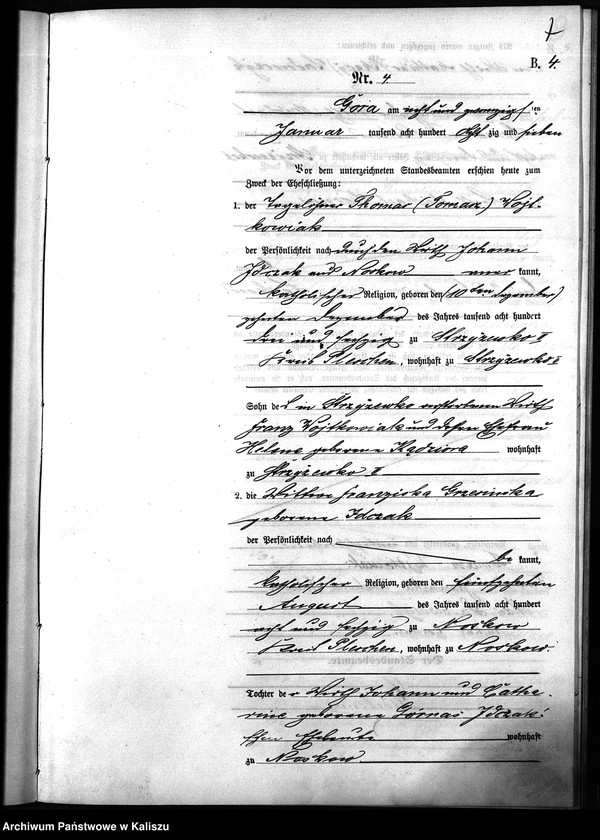 7
B. 4.
Nr. 4
Góra am acht und zwanzigsten
Januar tausend acht hundert acht zig und sieben
Vor dem unterzeichneten Standesbeamten erschien heute zum
Zweck der Eheschließung:
1. der Thomas (Tomasz) Wojt-
kowiak
der Persönlichkeit nach durch den Wirth Johann
Idczak aus Noskow aner kannt,
katholischer Religion, geboren den (10ten Dezember)
zehnten Dezember des Jahres tausend acht hundert
drei und sechzig zu Strzyzewko II
Kreis Pleschen, wohnhaft zu Strzyzewko II
Sohn des in Strzyzewko verstorbenen Wirth
Franz Wojtkowiak und dessen Ehefrau
Helene geborene Kędziora wohnhaft
zu Strzyzewko II
2. die Wittwe Franziska
geborene Idczak
der Persönlichkeit nach
be kannt,
katholischer Religion, geboren den fünfzehnten
August des Jahres tausend acht hundert
acht und sechzig zu Noskow
Kreis Pleschen, wohnhaft zu Noskow.
Tochter der Wirth Johann und Catha-
rine geborene Górna Idczak-
schen Eheleute wohnhaft
zu Noskow
Archiwum Państwowe w Kaliszu